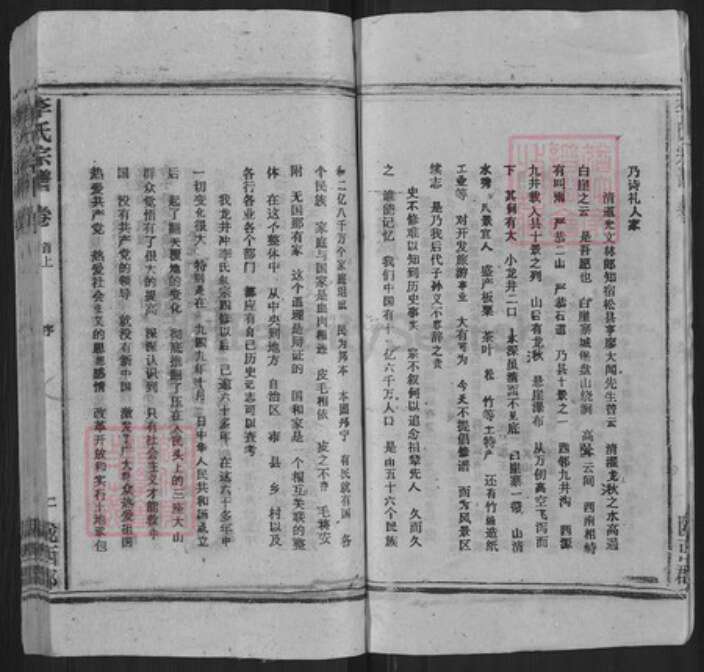 乃诗礼人家
清道光文林郎知宿松县事邬大闻先生曾云 清濯龙秋之水高逼
白崖之云 是吾愿也 白崖寨城堡盘山绕涧 高耸云间 西南相峙
有叫雨 严恭二山 严恭石道 乃县十景之一 西邻九井沟 四源
九井载入县十景之列 山曰有龙秋 悬崖瀑布 从万仞高空飞泻而
下 其涧有大 小龙井二口 水深虽清而不见底 白崖寨一带 山清
水秀 风景宜人 盛产板栗 茶叶 松 竹等土特产 还有竹编造纸
工业等 对开发旅游事业 大有可为 今天不提倡修谱 而为风景区
续志 是乃我后代子孙义不容辞之责
史不修难以知到历史事实 宗不叙何以追念祖辈先人 久而久
之 谁能记忆 我们中国有十一亿六千万人口 是由五十六个民族
和二亿八千万个家庭组成 民为邦本 本固邦宁 有民就有国 各
个民族 家庭与国家是血肉相连 皮毛相依 皮之不存 毛将安
附 无国那有家 这个道理是辩证的 国和家是一个相互关联的整
体 在这个整体中 从中央到地方 自治区 市 县 乡 村以及
各行各业各个部门 都应有自己历史记志可以查考
我龙井冲李氏叙宗四修以后 已逾六十多年 在这六十多年中
一切变化很大 特别是在一九四九年十月一日中华人民共和国成立
后 起了翻天覆地的变化 彻底推翻了压在人民头上的三座大山
群众觉悟有了很大的提高 深深认识到 只有社会主义才能救中
国 没有共产党的领导 就没有新中国 激发了广大群众热爱祖国
热爱共产党 热爱社会主义的思想感情 改革开放和实行土地承包
李氏宗谱 卷
首上
序
二
陇西郡